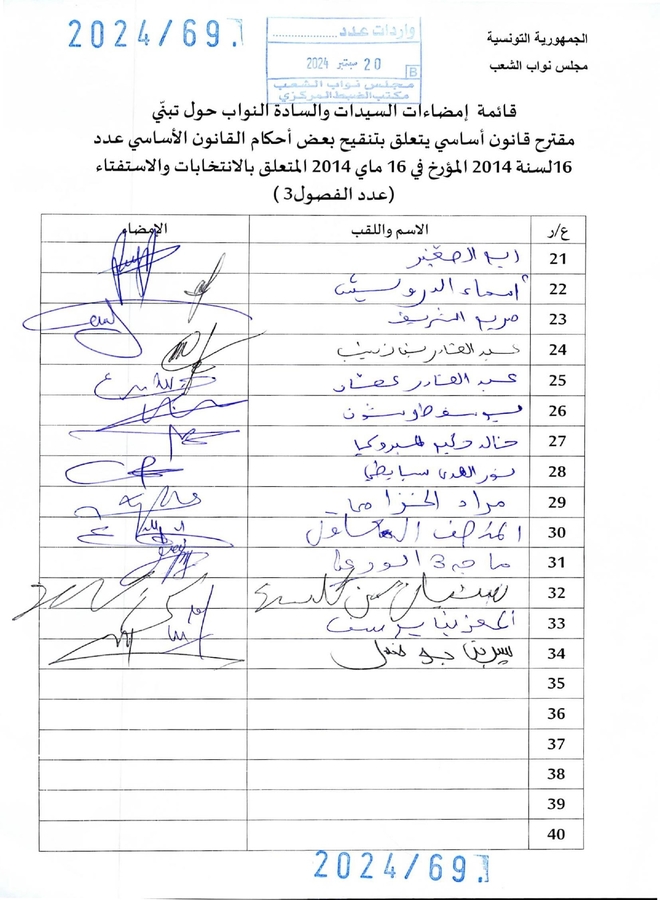 2024/69.
واردات عدد
20 سبتمبر 2024
B
مجلس نواب الشعب
مكتب الضبط المركزي
الجمهورية التونسية
مجلس نواب الشعب
قائمة إمضاءات السيدات والسادة النواب حول تبنّي
مقترح قانون أساسي يتعلق بتنقيح بعض أحكام القانون الأساسي عدد
16لسنة 2014 المؤرخ في 16 ماي 2014 المتعلق بالانتخابات والاستفتاء
(عدد الفصول3 )
ع/ر الاسم واللقب الإمضاء
21
22 أسماء الدرويش
23 مريم الشريف
24 عبد القادر بن زينب
25 عبد القادر عمار
26
27 خالد حكيم المبروكي
28 نور الهدى سبايطي
29 مراد الخزامي
30 المنصف المعلول
31 ماجدة الورغي
32
33 المعز بن يوسف
34
35
36
37
38
39
40
2024/69.